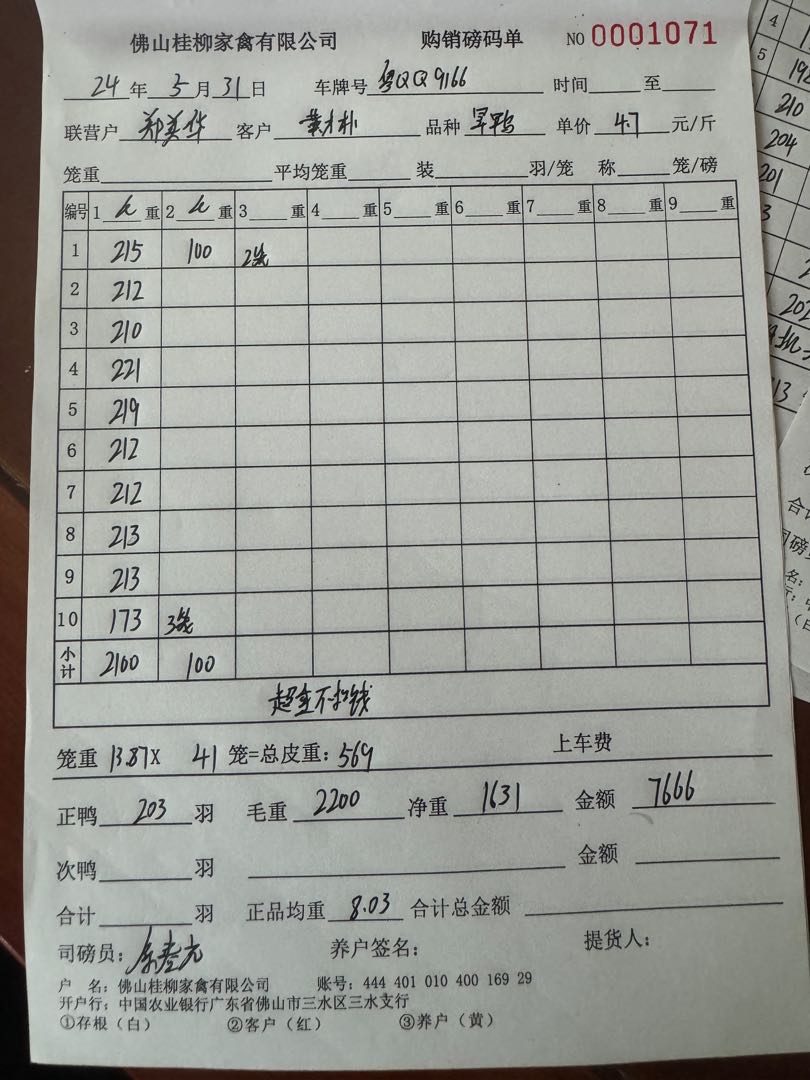 佛山桂柳家禽有限公司 购销磅码单 NO 0001071
24 年 5 月 31 日 车牌号 粤QQ9166 时间 至
联营户 郑美华 客户 品种 旱鸭 单价 4.7 元/斤
笼重 平均笼重 装 羽/笼 称 笼/磅
编号 1 重 2 重 3 重 4 重 5 重 6 重 7 重 8 重 9 重
1 215 100 2笼
2 212
3 210
4 221
5 219
6 212
7 212
8 213
9 213
10 173 3笼
小计 2100 100
超重不扣钱
笼重 13.87X 41 笼=总皮重: 569 上车费
正鸭 203 羽 毛重 2200 净重 1631 金额 7666
次鸭 羽 金额
合计 羽 正品均重 8.03 合计总金额
司磅员: 养户签名: 提货人:
户 名: 佛山桂柳家禽有限公司 账号: 444 401 010 400 169 29
开户行: 中国农业银行广东省佛山市三水区三水支行
①存根(白) ②客户(红) ③养户(黄)
4
5
210
204
201
3
202